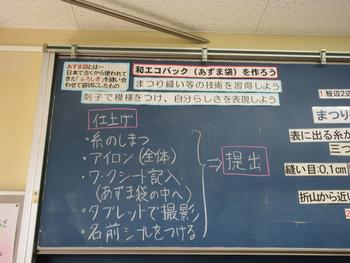 あずま袋とは…
日本で古くから使われて
きた「ふろしき」を縫い合
わせて袋状にしたもの
和エコバック（あずま袋）を作ろう
まつり縫い等の技術を習得しよう
刺子で模様をつけ、自分らしさを表現しよう
仕上げ
・糸のしまつ
・アイロン（全体）
・ワークシート記入
（あずま袋の中へ）
・タブレットで撮影
・名前シールをつける
⇒提出
1 短辺2辺
まつり
表に出る糸が
三つ
縫い目:0.1cm
折山から近い